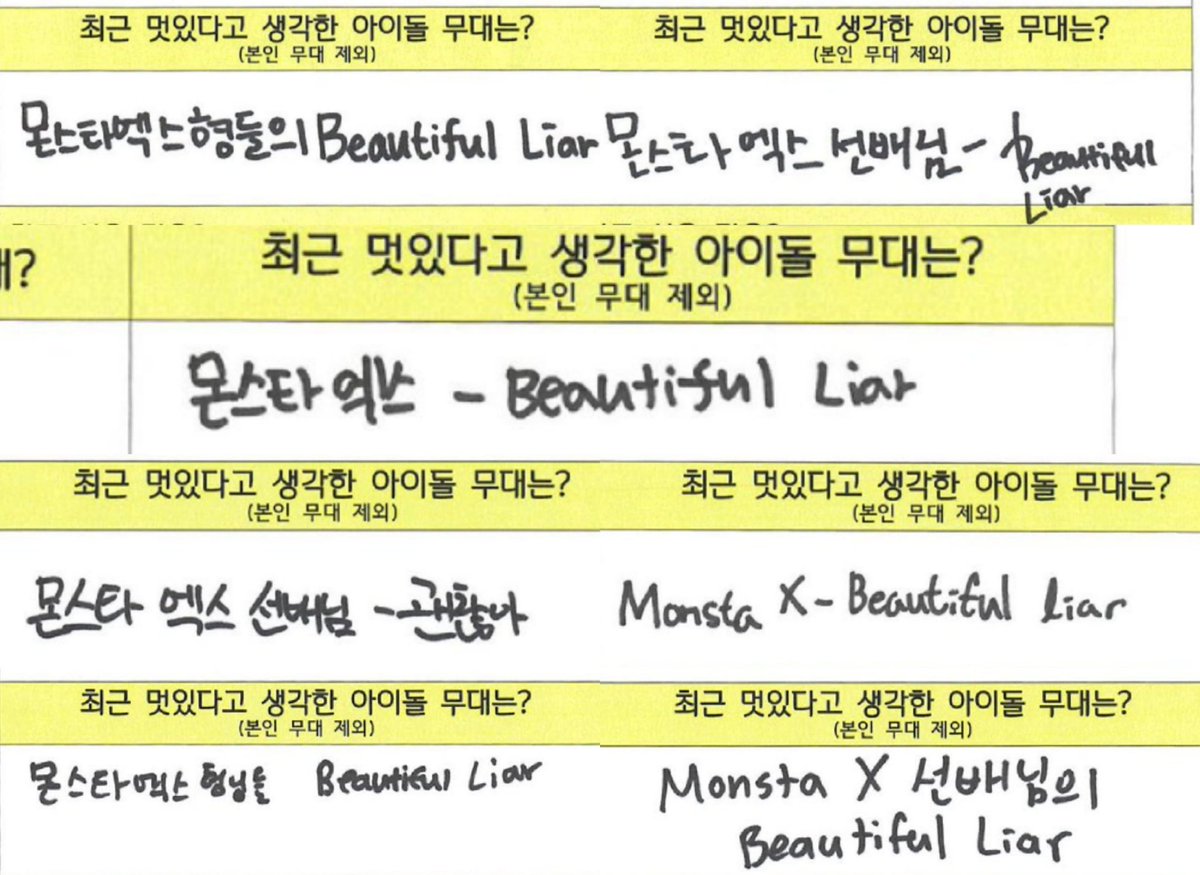 최근 멋있다고 생각한 아이돌 무대는?
(본인 무대 제외)
몬스타엑스형들의 Beautiful Liar
최근 멋있다고 생각한 아이돌 무대는?
(본인 무대 제외)
몬스타 엑스 선배님 - Beautiful
Liar
최근 멋있다고 생각한 아이돌 무대는?
(본인 무대 제외)
몬스타 엑스 - Beautiful Liar
최근 멋있다고 생각한 아이돌 무대는?
(본인 무대 제외)
몬스타 엑스 선배님 - 괜찮아
최근 멋있다고 생각한 아이돌 무대는?
(본인 무대 제외)
Monsta X - Beautiful liar
최근 멋있다고 생각한 아이돌 무대는?
(본인 무대 제외)
몬스타엑스 형님들 Beautiful Liar
최근 멋있다고 생각한 아이돌 무대는?
(본인 무대 제외)
Monsta X 선배님의
Beautiful Liar